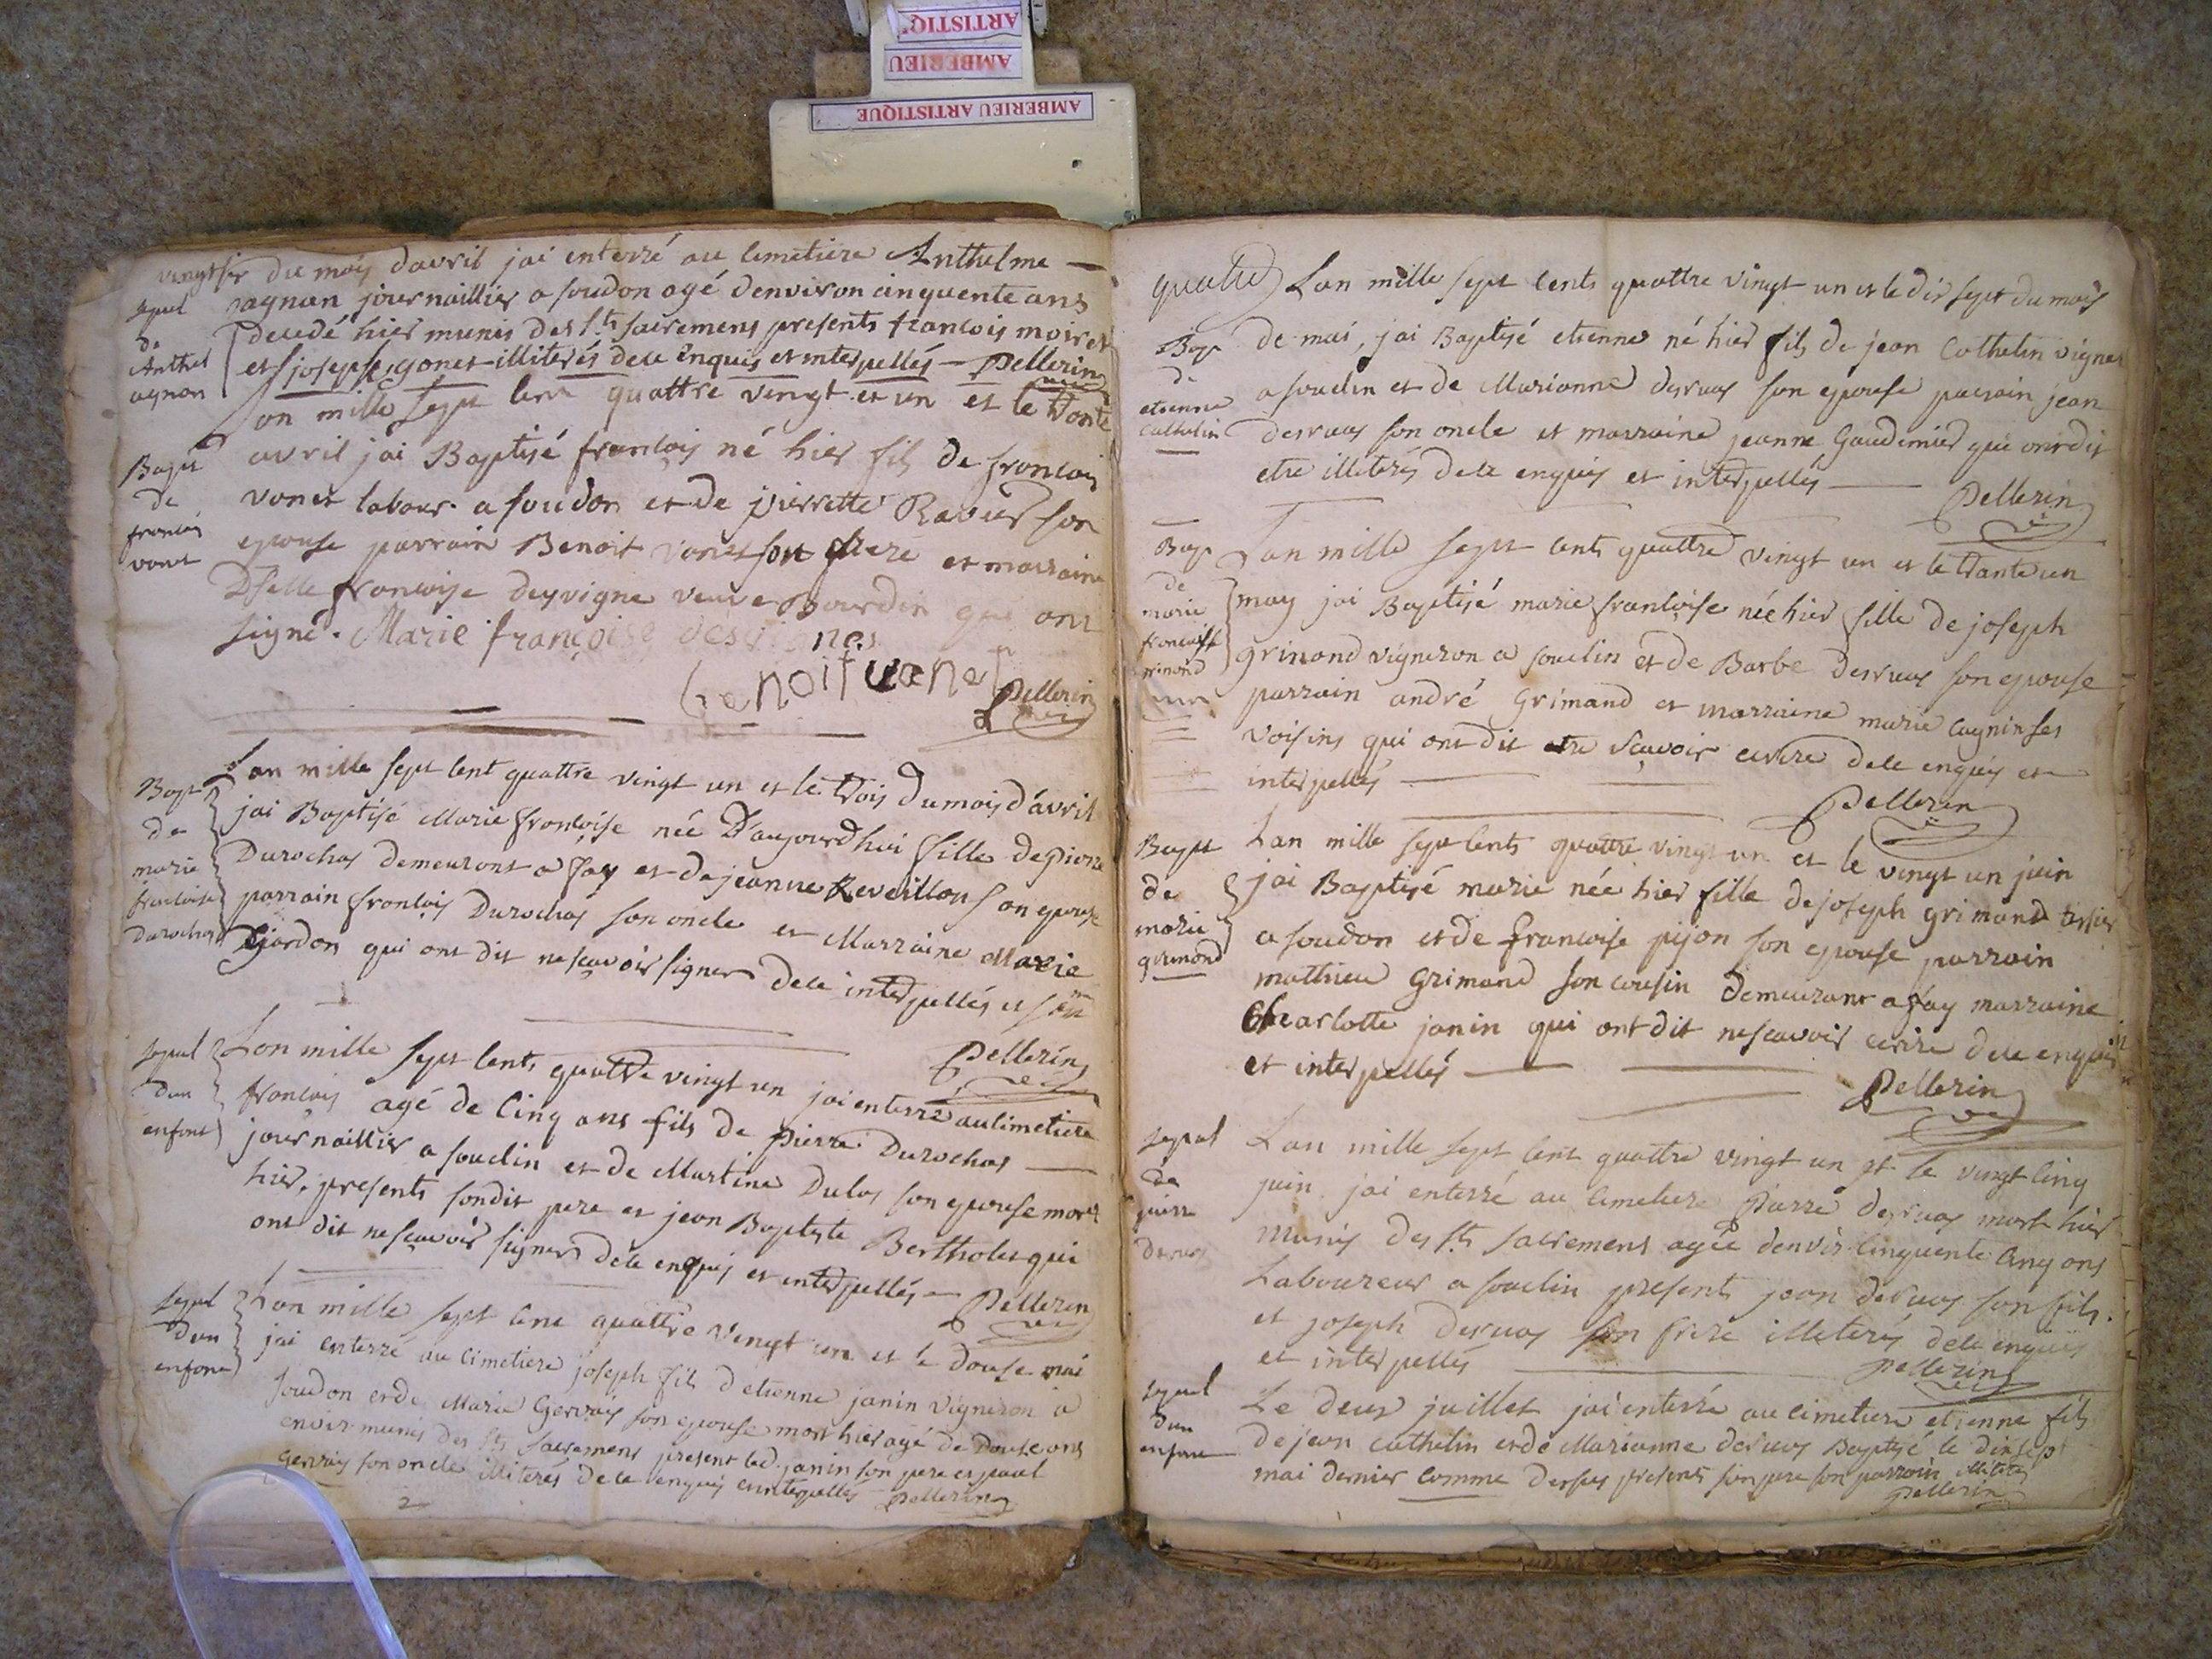 ARTISTIQ'
AMBERIEU
AMBERIEU ARTISTIQUE
vingt six du mois davril jai enterré au Cimetiere Anthelme
Sepul
de
Anthel
agnan
agnan journaillier a soudon agé denviron cinquente ans
decedé hier munis des Sts sacremens presents francois moiret
et joseph gonet illiterés de ce Enquis et interpellés - Pellerin
Lan mille sept Cent quattre vingt et un et le trente
Bapt
de
francois
vonet
avril jai Baptisé francois né hier fils de francois
vonet labour. a soudon et de pierrette Ravet son
epouse parrain Benoit vonet son frere et marraine
Dselle francoise desvigne veuve Bourdin qui ont
signé. Marie françoise desvignes
Benoit vonet
Pellerin
Bapt
de
marie
francoise
durochas
Lan mille sept Cent quattre vingt un et le trois du mois d'avril
jai Baptisé Marie francoise née D'aujourdhui fille de pierre
Durochas demeurant a fay et de jeanne Reveillon son epouse
parrain francois Durochas son oncle et Marraine Marie
Gardon qui ont dit ne scavoir signer de ce interpellés et
Pellerin
Sepul
dun
enfant
Lan mille sept Cents quattre vingt un jai enterré au Cimetiere
francois agé de Cinq ans fils de Pierre Durochas
journaillier a souclin et de Martine Dulas son epouse mort
hier, presents sondit pere et jean Baptiste Bertholet qui
ont dit ne scavoir signer de ce enquis et interpellés - Pellerin
Sepul
dun
enfant
Lan mille sept Cent quattre vingt un et le douse mai
jai enterré au Cimetiere joseph fils d etienne janin vigneron a
soudon et de Marie Gervais son epouse mort hier agé de douse ans
envir. munis des Sts Sacremens present led. janin son pere et paul
Gervais son oncle illiterés de ce enquis et interpellés Pellerin
2
quatre
Lan mille sept Cents quattre vingt un et le dix sept du mois
Bap
de
etienne
Cathelin
de mai, jai Baptisé etienne né hier fils de jean Cathelin vigner
a souclin et de Marianne desruas son epouse parrain jean
desruas son oncle et marraine jeanne Gaudemier qui ont dit
etre illiterés de ce enquis et interpellés
Pellerin
Bap
de
marie
francoise
grimond
Lan mille sept Cents quattre vingt un et le trante un
may jai Baptisé marie francoise née hier fille de joseph
grimond vigneron a souclin et de Barbe desruas son epouse
parrain andré Grimand et marraine marie Cagnin ses
voisins qui ont dit etre scavoir ecrire de ce enquis et
interpellés
Pellerin
Bapt
de
marie
grimond
Lan mille sept Cents quattre vingt un et le vingt un juin
jai Baptisé marie née hier fille de joseph grimand tissier
a soudon et de francoise pijon son epouse parrain
mathieu Grimand son cousin demeurant a fay marraine
Charlotte janin qui ont dit ne scavoir ecrire de ce enquis
et interpellés
Pellerin
Sepul
de
pierre
deruas
Lan mille sept Cent quattre vingt un et le vingt Cinq
juin jai enterré au Cimetiere Pierre desruas mort hier
munis des Sts sacremens agée denvir. Cinquente Cinq ans
Laboureur a souclin presents jean deruas son fils.
et joseph deruas son frere illiterés de ce enquis
et interpellés
Pellerin
Sepul
dun
enfant
Le deux juillet jai enterré au Cimetiere etienne fils
de jean Cathelin et de Marianne deruas Baptisé le dix sept
mai dernier Comme dessus presents son pere son parrain illiterés
Pellerin